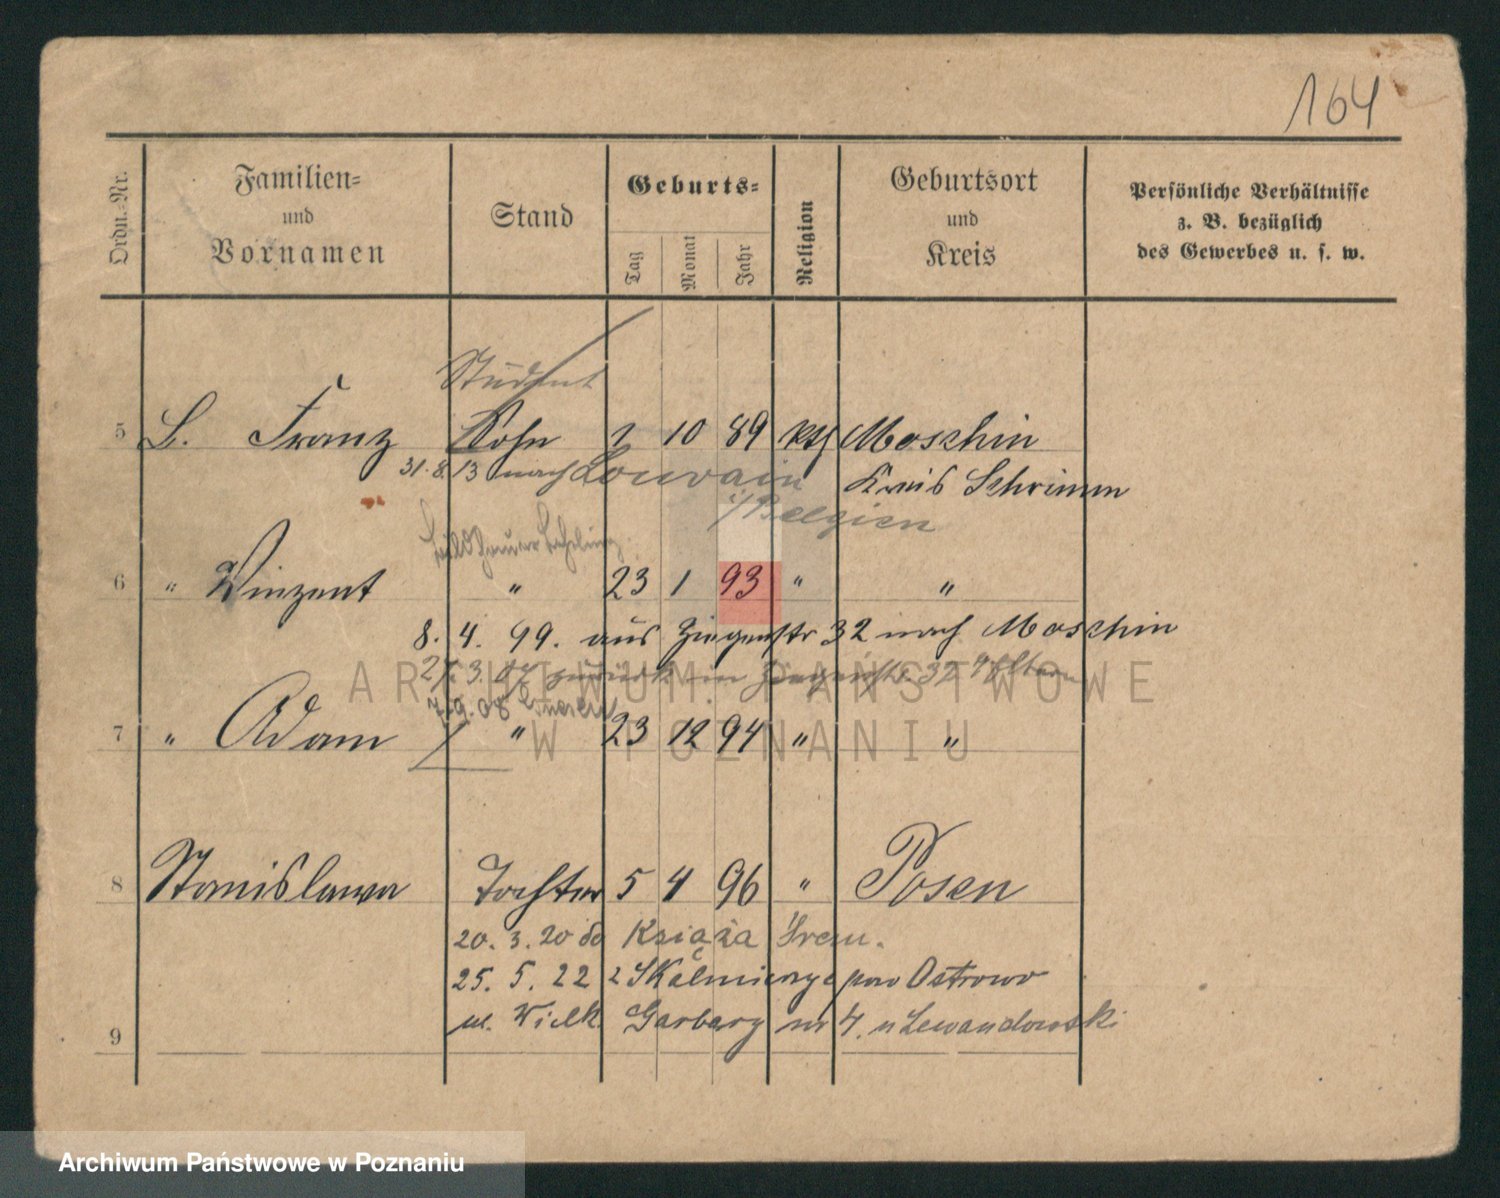 164
Ordn.-Nr.
Familien= und Vornamen
Stand
Geburts=
Tag
Monat
Jahr
Religion
Geburtsort und Kreis
Persönliche Verhältnisse
z. B. bezüglich
des Gewerbes u. s. w.
Student
5 L. Franz Sohn 1 10 89 kth Moschin
31. 8. 13 nach Louvain Kreis Schrimm
i/Belgien
Bildhauer Lehrling
6 " Vinzent " 23 1 93 " "
8. 4. 99. aus Ziegenstr 32 nach Moschin
27. 3. 07 zurück in Ziegenstr. 32 Eltern
7.9.08
7 " Adam " 23 12 94 " "
8 Stanislawa Tochter 5 4 96 " Posen
20. 3. 20 do Książa Śrem.
25. 5. 22 z Skalmierzyc pow Ostrowo
ul. Wielk. Garbary nr 4. u Lewandowski
9
ARCHIWUM PAŃSTWOWE
W POZNANIU
Archiwum Państwowe w Poznaniu